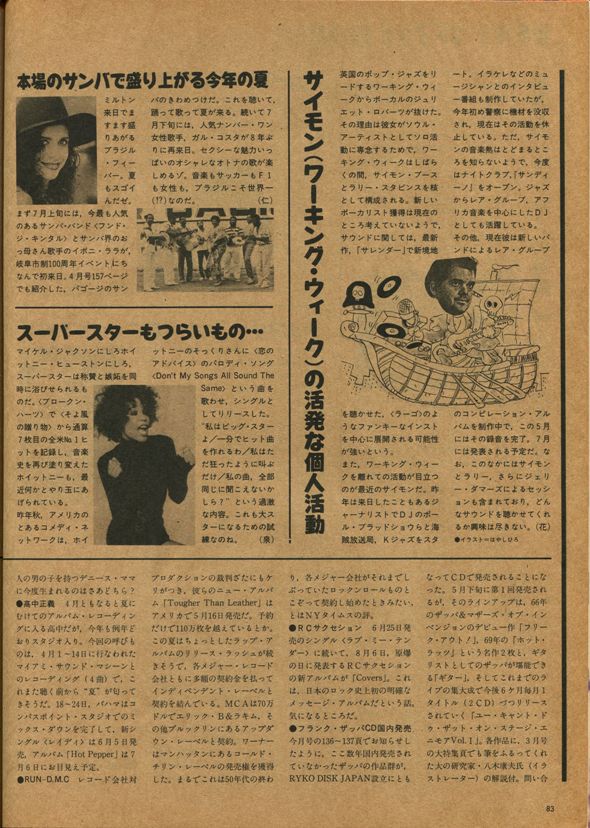 本場のサンバで盛り上がる今年の夏
ミルトン
来日でま
すます盛
りあがる
ブラジル
・フィー
バー。夏
もスゴイ
んだぜ。
まず7月上旬には、今最も人気
のあるサンバ・バンド〈フンド・
ジ・キンタル〉とサンバ界のおっ
母さん歌手のイボニ・ララが、
岐阜市制100周年イベントにち
なんで初来日。4月号157ページ
でも紹介した、パゴージのサン
バのきわめつけだ。これを聴いて、
踊って歌って夏が来る。続いて7
月下旬には、人気ナンバー・ワン
女性歌手、ガル・コスタが8年ぶ
りに再来日。セクシーな魅力いっ
ぱいのオシャレなオトナの歌が楽
しめるゾ。音楽もサッカーもF1
も女性も、ブラジルこそ世界一
(!?)なのだ。 (仁)
スーパースターもつらいもの…
マイケル・ジャクソンにしろホイ
ットニー・ヒューストンにしろ、
スーパースターは称賛と嫉妬を同
時に浴びせられるも
のだ。〈ブロークン・
ハーツ〉で《そよ風
の贈り物》から通算
7枚目の全米No.1ヒ
ットを記録し、音楽
史を再び塗り変えた
ホイットニーも、最
近何かとやり玉にあ
げられている。
昨年秋、アメリカの
とあるコメディ・ネ
ットワークは、ホイ
ットニーのそっくりさんに〈恋の
アドバイス〉のパロディ・ソング
〈Don't My Songs All Sound The
Same〉という曲を
歌わせ、シングルと
してリリースした。
“私はビッグ・スター
よ／一分でヒット曲
を作れるわ／私はた
だ狂ったように叫ぶ
だけ／私の曲、全部
同じに聞こえないか
しら？”という過激
な内容。これも大ス
ターになるための試
練なのね。 (泉)
サイモン(ワーキング・ウィーク)の活発な個人活動
英国のポップ・ジャズをリ
ードするワーキング・ウィ
ークからボーカルのジュリ
エット・ロバーツが抜けた。
その理由は彼女がソウル・
アーティストとしてソロ活
動に専念するためで、ワー
キング・ウィークはしばら
くの間、サイモン・ブース
とラリー・スタビンスを核
として構成される。新しい
ボーカリスト獲得は現在の
ところ考えていないようで、
サウンドに関しては、最新
作、『サレンダー』で新境地
を聴かせた、〈ラーゴ〉のよ
うなファンキーなインスト
を中心に展開される可能性
が強いという。
また、ワーキング・ウィー
クを離れての活動が目立つ
のが最近のサイモンだ。昨
年は来日したこともあるジ
ャーナリストでDJのポー
ル・ブラッドショウらと海
賊放送局、Kジャズをスタ
ート。イラケレなどのミュ
ージシャンとのインタビュ
ー番組も制作していたが、
今年初め警察に機材を没収
され、現在はその活動を休
止している。ただ、サイモ
ンの音楽熱はとどまるとこ
ろを知らないようで、今度
はナイトクラブ、「サンディ
ーノ」をオープン。ジャズ
からレア・グルーブ、アフ
リカ音楽を中心にしたDJ
としても活躍している。
その他、現在彼は新しいバ
ンドによるレア・グルーブ
のコンピレーション・アル
バムを制作中で、この5月
にはその録音を完了。7月
には発表される予定だ。な
お、このなかにはサイモン
とラリー、さらにジェリ
ー・ダマーズによるセッシ
ョンも含まれており、どん
なサウンドを聴かせてくれ
るか興味は尽きない。(花)
●イラスト＝はやしひろ
人の男の子を持つデニース・ママ
に今度生まれるのはさあどちら？
●高中正義　4月ともなると夏に
むけてのアルバム・レコーディン
グに入る高中だが、今年も例年ど
おりスタジオ入り。今回の呼びも
のは、4月1〜14日に行なわれた
マイアミ・サウンド・マシーンと
のレコーディング(4曲)で、こ
れまた聴く前から“夏”が匂って
きそうだ。18〜24日、バハマはコ
ンパスポイント・スタジオでのミ
ックス・ダウンを完了して、新シ
ングル〈レイディ〉は6月5日発
売、アルバム「Hot Pepper」は7
月6日にお目見え予定。
●RUN-D.M.C　レコード会社対
プロダクションの裁判ざたにもケ
リがつき、彼らのニュー・アルバ
ム「Tougher Than Leather」は
アメリカで5月16日発売だ。予約
だけで110万枚を越えているとか。
この夏はちょっとしたラップ・ア
ルバムのリリース・ラッシュが続
きそうで、各メジャー・レコード
会社ともに多額の契約金を払って
インディペンデント・レーベルと
契約を結んでいる。MCAは70万
ドルでエリック・B&ラキム、そ
の他ブルックリンにあるアップダ
ウン・レーベルと契約。ワーナー
はマンハッタンにあるコールド・
チリン・レーベルの発売権を獲得
した。まるでこれは50年代の終わ
り、各メジャー会社がそれまでし
ぶっていたロックンロールものと
こぞって契約し始めたときみたい、
とはNYタイムスの評。
●RCサクセション　6月25日発
売のシングル〈ラブ・ミー・テン
ダー〉に続いて、8月6日、原爆
の日に発表するRCサクセション
の新アルバムが「Covers」。これ
は、日本のロック史上初の明確な
メッセージ・アルバムだという話。
気になるところだ。
●フランク・ザッパCD国内発売
今月号の136〜137頁でお知らせし
たように、ここ数年国内発売され
ていなかったザッパの作品群が、
RYKO DISK JAPAN設立にとも
なってCDで発売されることにな
った。5月下旬に第1回発売され
るが、そのラインアップは、66年
のザッパ&マザーズ・オブ・イン
ベンションのデビュー作「フリー
ク・アウト！」、69年の「ホット・
ラッツ」という名作2枚と、ギタ
リストとしてのザッパが堪能でき
る「ギター」、そしてこれまでのラ
イブの集大成で今後6ケ月毎月1
タイトル(2CD)づつリリース
されていく「ユー・キャント・ド
ゥ・ザット・オン・ステージ・エ
ニモアVol.1」。各作品に、3月号
の大特集頁でも筆をふるってくれ
た大の研究家・八木康夫氏(イラ
ストレーター)の解説付。問い合
83